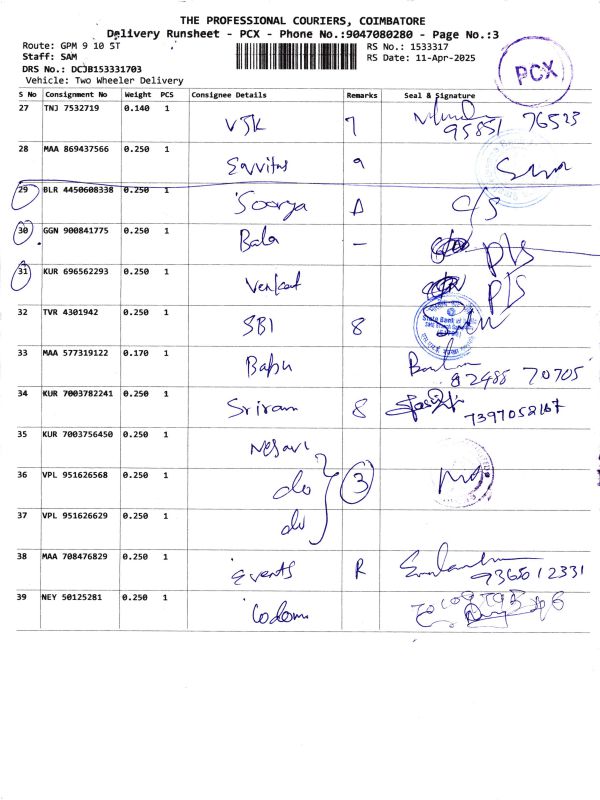 THE PROFESSIONAL COURIERS, COIMBATORE
Delivery Runsheet - PCX - Phone No.:9047080280 - Page No.:3
Route: GPM 9 10 ST
RS No.: 1533317
Staff: SAM
RS Date: 11-Apr-2025
DRS No.: DCJB153331703
Vehicle: Two Wheeler Delivery
PCX
S No Consignment No Weight PCS Consignee Details Remarks Seal & Signature
27 TNJ 7532719 0.140 1 VJK 7
95851 76523
28 MAA 869437566 0.250 1 Equitas 9
29 BLR 4450608338 0.250 1 Soorya A C/S
30 GGN 900841775 0.250 1 Bala — P/S
31 KUR 696562293 0.250 1 Venkat P/S
32 TVR 4301942 0.250 1 SBI 8
State Bank of India
33 MAA 577319122 0.170 1 Babu
82488 70705
34 KUR 7003782241 0.250 1 Sriram 8
7397052167
35 KUR 7003756450 0.250 1 Nesavi
36 VPL 951626568 0.250 1 do 3
37 VPL 951626629 0.250 1 do
38 MAA 708476829 0.250 1 Events R
9365012331
39 NEY 50125281 0.250 1